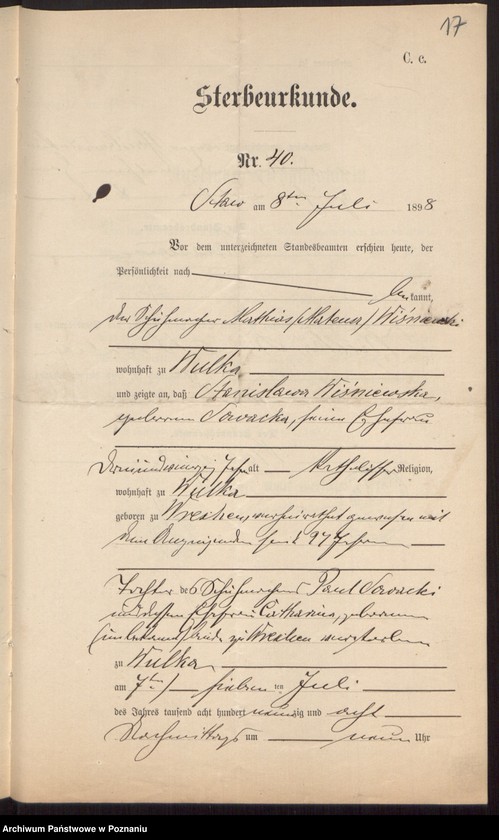 17
C. c.
Sterbeurkunde.
Nr. 40.
am 8ten Juli 1898
Vor dem unterzeichneten Standesbeamten erschien heute, der
Persönlichkeit nach
bekannt,
der Schuhmacher Mathias /Mateusz/ Wiśniewski
wohnhaft zu Wulka
und zeigte an, daß Stanislawa Wiśniewska,
geborene Sowacka, seine Ehefrau
alt Katholischer Religion,
wohnhaft zu Wulka
geboren zu Wreschen, verheirathet gewesen mit
dem Anzeigenden seit 27 Jahren
Tochter des Schuhmachers Paul Sowacki
und dessen Ehefrau Catharina, geborene
zu Wreschen verstorben
zu Wulka
am 7ten / sieben ten Juli
des Jahres tausend acht hundert neunzig und acht
Nachmittags um neun Uhr
Archiwum Państwowe w Poznaniu